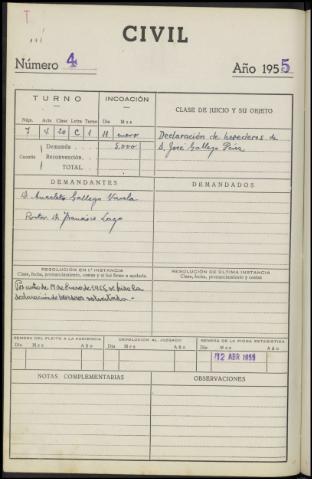 CIVIL
Número 4
Año 1955
TURNO
INCOACIÓN
CLASE DE JUICIO Y SU OBJETO
Núm. Año Clase Letra Turno Día Mes
7 20 C 1 11 enero
Declaración de herederos de
D. José Gallego
Cuantía
Demanda 5.000
Reconvención
TOTAL
DEMANDANTES
DEMANDADOS
D. Gallego Varela
Francisco Lago
RESOLUCIÓN EN 1.ª INSTANCIA
Clase, fecha, pronunciamiento, costas y si fué firme o apelada
RESOLUCIÓN DE ÚLTIMA INSTANCIA
Clase, fecha, pronunciamiento y costas
Por auto de 19 de Enero de 1955, se hizo la
declaración de herederos solicitada.
REMESA DEL PLEITO A LA AUDIENCIA
DEVOLUCIÓN AL JUZGADO
REMESA DE LA FICHA ESTADÍSTICA
Día Mes Año
Día Mes Año
Día Mes Año
12 ABR 1955
NOTAS COMPLEMENTARIAS
OBSERVACIONES